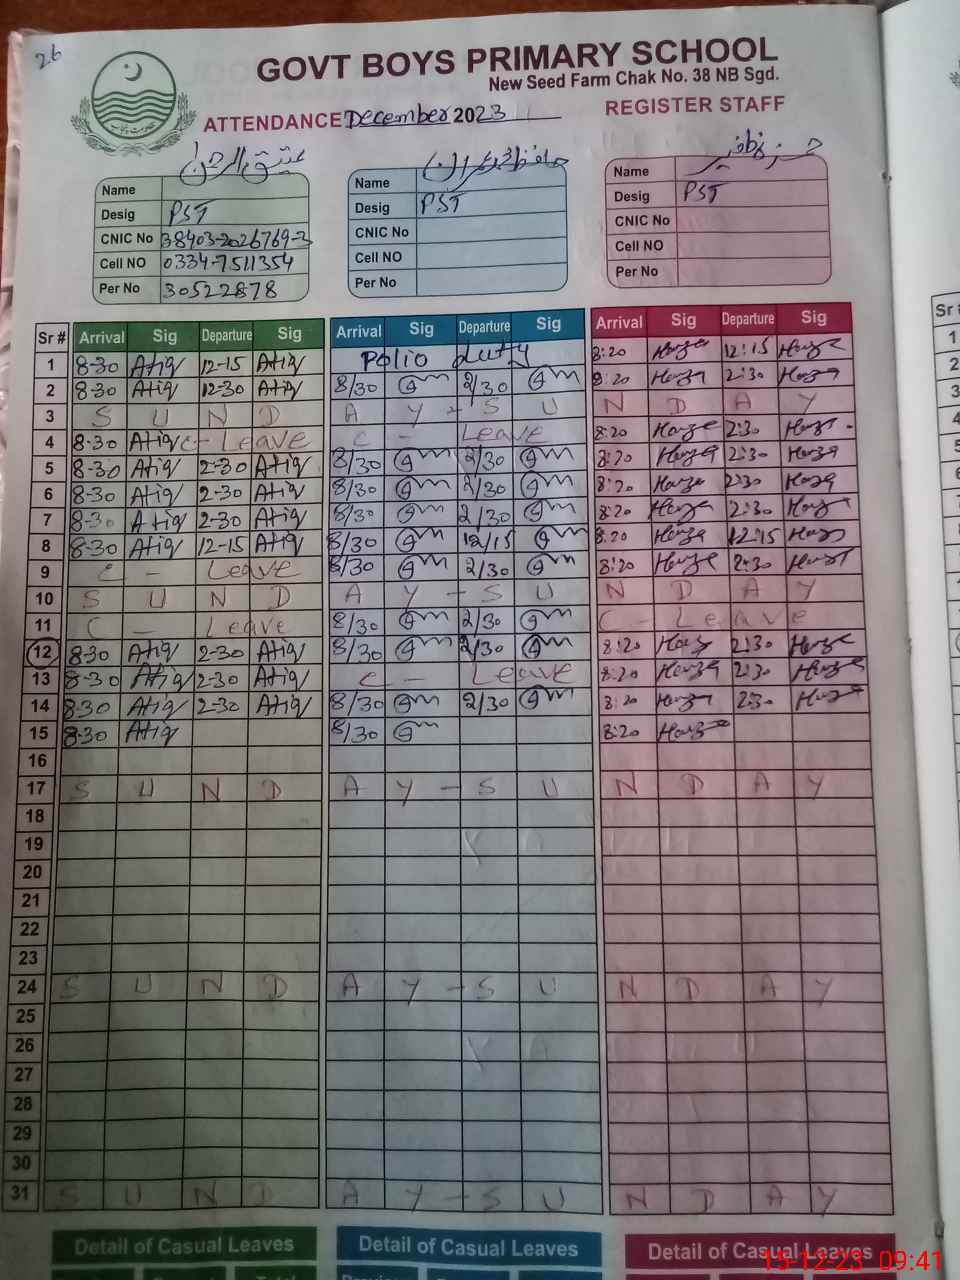 26
GOVT BOYS PRIMARY SCHOOL
New Seed Farm Chak No. 38 NB Sgd.
ATTENDANCE December 2023 REGISTER STAFF
عتیق الرحمن
Name Name Name
Desig PST Desig PST Desig PST
CNIC No 38403-2026769-3 CNIC No CNIC No
Cell NO 0334-7511354 Cell NO Cell NO
Per No 30522878 Per No Per No
Sr # Arrival Sig Departure Sig Arrival Sig Departure Sig Arrival Sig Departure Sig
1 8-30 Atiq 12-15 Atiq Polio duty 8:20 12:15
2 8-30 Atiq 12-30 Atiq 8/30 2/30 8:20 2:30
3 S U N D A Y - S U N D A Y
4 8-30 Atiq C- Leave C - Leave 8:20 2:30
5 8-30 Atiq 2-30 Atiq 8/30 2/30 8:20 2:30
6 8-30 Atiq 2-30 Atiq 8/30 2/30 8:20 2:30
7 8-30 Atiq 2-30 Atiq 8/30 2/30 8:20 2:30
8 8-30 Atiq 12-15 Atiq 8/30 12/15 8:20 12:15
9 C - Leave 8/30 2/30 8:20 2:30
10 S U N D A Y - S U N D A Y
11 C - Leave 8/30 2/30 C - Leave
12 8-30 Atiq 2-30 Atiq 8/30 2/30 8:20 2:30
13 8-30 Atiq 2-30 Atiq C - Leave 8:20 2:30
14 8-30 Atiq 2-30 Atiq 8/30 2/30 8:20 2:30
15 8-30 Atiq 8/30 8:20
16
17 S U N D A Y - S U N D A Y
18
19
20
21
22
23
24 S U N D A Y - S U N D A Y
25
26
27
28
29
30
31 S U N D A Y - S U N D A Y
Detail of Casual Leaves Detail of Casual Leaves Detail of Casual Leaves
15-12-23 09:41